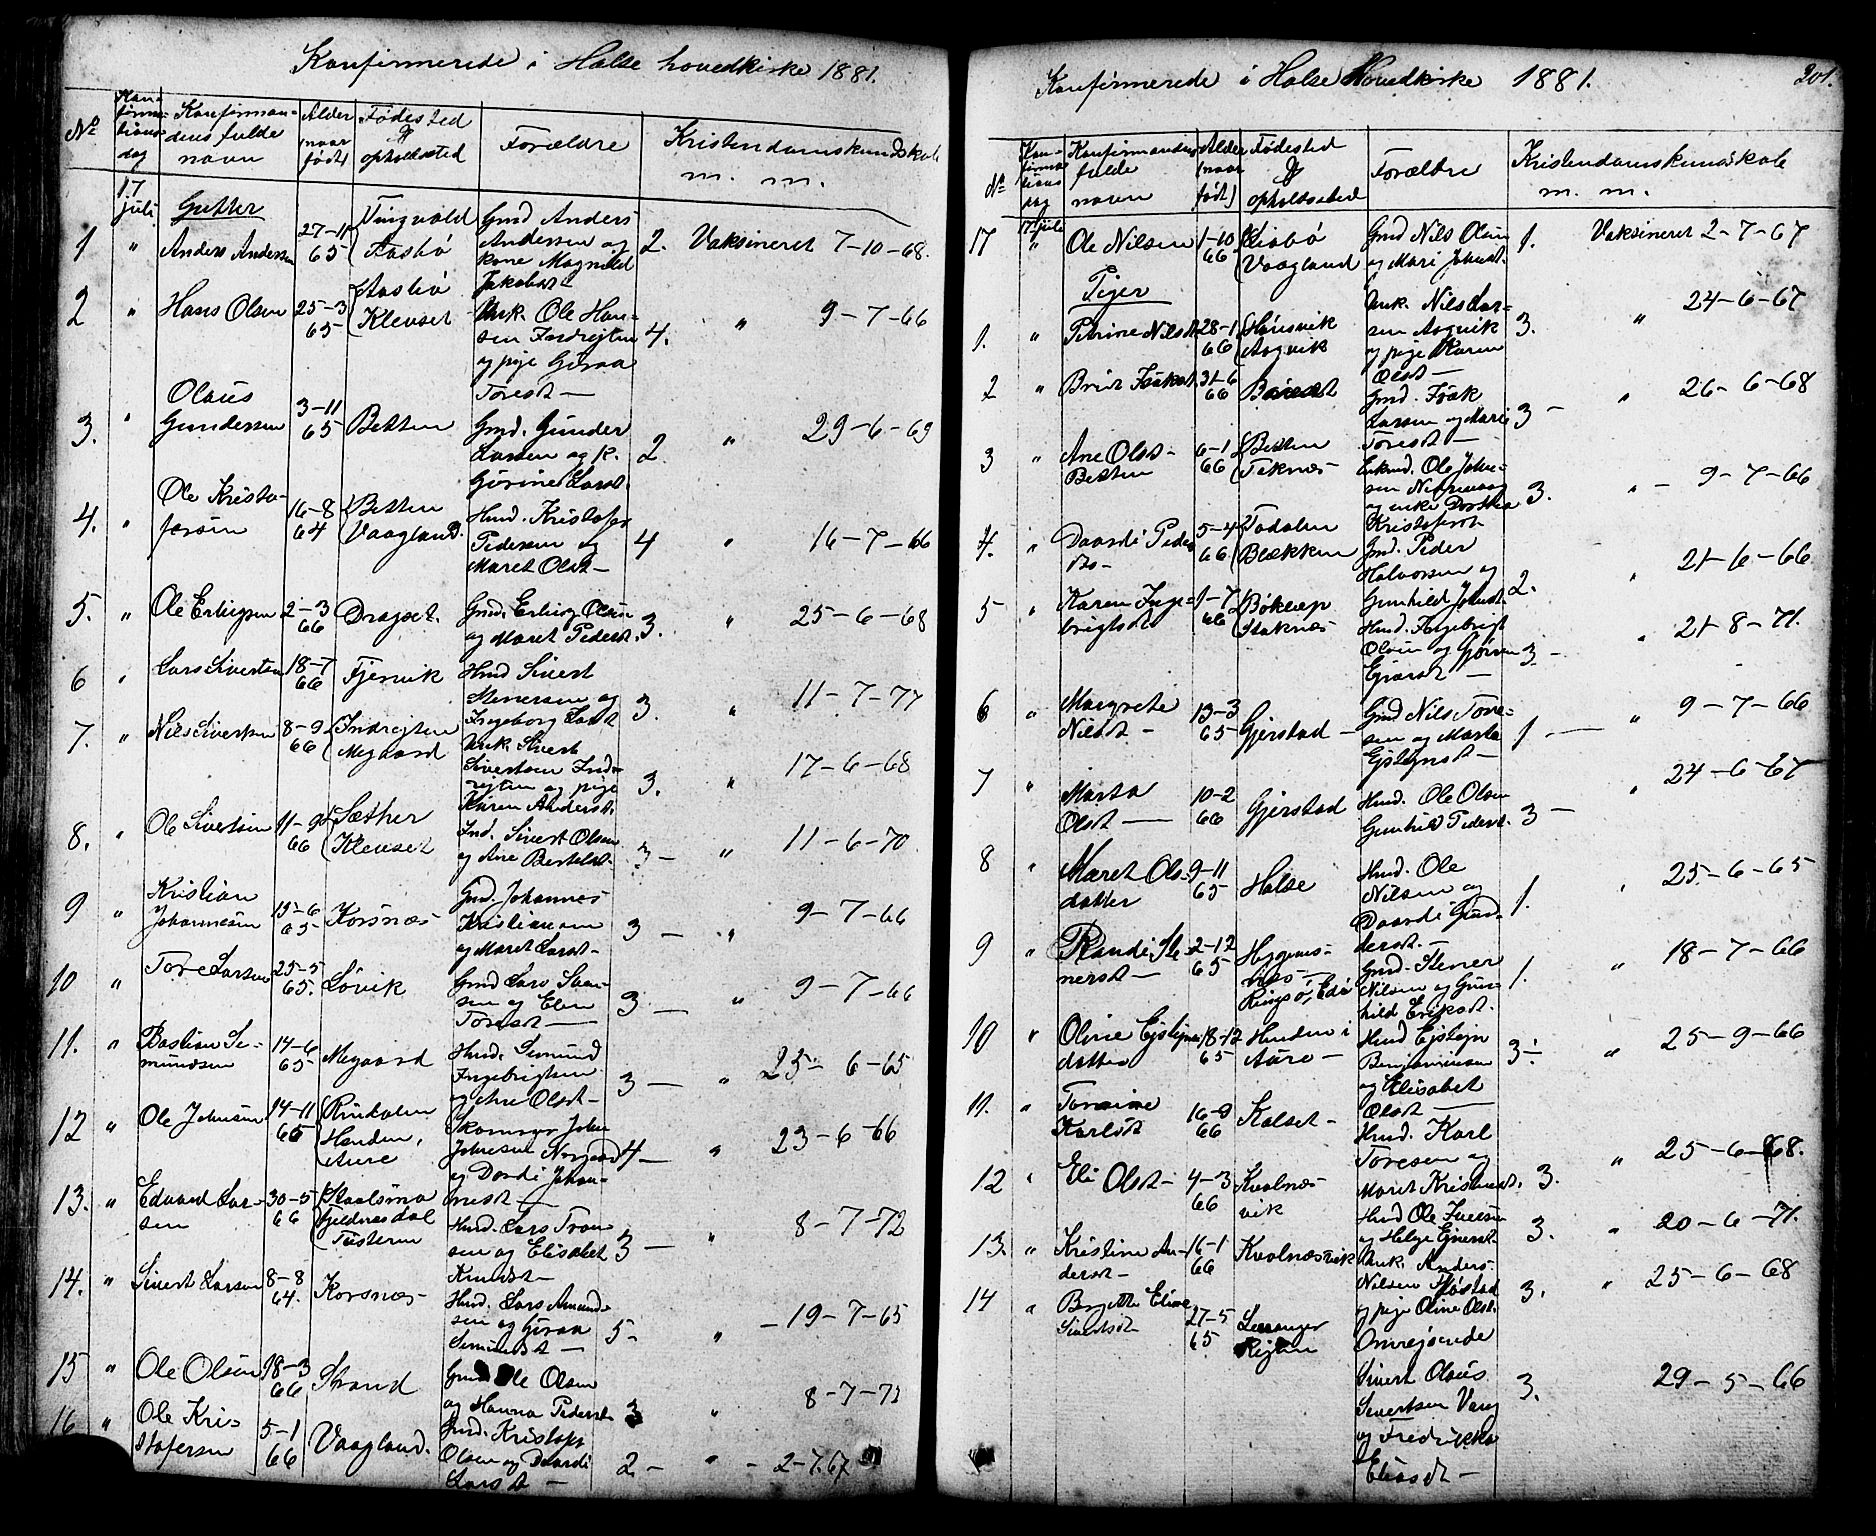 Konfirmerede i Halse hovedkirke 1881.
No
Konfirmationsdag
Konfirmandens fulde navn
Alder (naar født)
Fødested og opholdssted
Forældre
Kristendomskundskab m. m.
17 juli
Gutter
1 " Anders Andersen 27-11 65 Tingvold Aasbø Gmd Anders Andersen og kone Magnild Jakobsdt 2. Vaksineret 7-10-68.
2 " Hans Olsen 25-3 65 Aasbø Klevset Unk. Ole Hansen og pige Guraa Toresdt — 4. " 9-7-66
3. " Olaus Gundersen 3-11 65 Betten Gmd. Gunder Larsen og k. Gurine Larsdt. 2. " 29-6-69
4. " Ole Kristofersen 16-8 64 Betten Vaagland Hmd. Kristofer Pedersen og Maret Olsdt — 4 " 16-7-66
5. " Ole Erlingsen 2-3 66 Dragset. Gmd. Erling Olsen og Maret Pedersdt. 3. " 25-6-68
6 " Lars Sivertsen 18-7 66 Fjervik Hmd Sivert Stenersen og Ingeborg Larsdt 3. " 11-7-77
7. " Nils Sivertsen 8-9 66 Indrejten Megaard Unk. Sivert Sivertsen Indrejten og pige Karen Andersdt. 3. " 17-6-68
8. " Ole Sivertsen 11-9 66 Sæther Klevset Ind. Sivert Olsen og Ane Bertelsdt. 3 — " 11-6-70
9 " Kristian Johannesen 15-6 65 Korsnæs Gmd. Johannes Kristiansen og Maret Larsdt — 3 — " 9-7-66
10 " Tore Larsen 25-5 65. Løvik Gmd Lars og Elen Toresdt — 3 — " 9-7-66
11. " Bastian Simundsen 14-6 65 Megaard Hmd. Simund Ingebrigtsen og Ane Olsdt — 3 — " 25-6-65
12 " Ole Johnsen 14-11 65 Rindalen Henden, Aure John Johnsen og Dordi Johannesdt — 4 — " 23-6-66
13. " Edvard Larsen 30-5 66 Tusteren Hmd. Lars og Elisabet Knudsdt — 3 — " 8-7-72
14. " Sivert Larsen 8-8 64. Korsnæs Hmd. Lars Amundsen og Guraa Simundsdt — 5 — " — 19-7-65
15 " Ole Olsen 18-3 66 Strand Gmd Ole Olsen og Hanna Pedersdt 3 " 8-7-72
16 " Ole Kristofersen 5-1 66 Vaagland. Gmd. Kristofer Olsen og Daardi Larsdt — 2 — " — 2-7-67
Konfirmerede i Halse Hovedkirke 1881.
201.
No
Konfirmationsdag
Konfirmandens fulde navn
Alder (naar født)
Fødested og opholdssted
Forældre
Kristendomskundskab m. m.
17 juli
17 " Ole Nilsen 1-10 66 Vaagland Gmd Nils Olsen og Mari Johnsdt. 1. Vaksineret 2-7-67
Piger
1. " Petrine Nilsdt 28-1 66 Aagvik Unk. Nils Larsen Aagvik og pige Karen Olsdt — 3. " 24-6-67
2 " Brit Isaksdt 31-6 66 Gmd. Isak Larsen og Mari Toresdt — 3 — " 26-6-68
3 " Ane Olsdt — Betten 6-1 66 Betten Ole Johnsen og enke Dorthea Kristofersdt 3. " — 9-7-66
4. " Daardi Pedersdt — 5-4 66 Todalen Blækken Gmd. Peder Halvorsen og Gunhild Johnsdt. 2. " 21-6-66
5 " Karen Ingebrigtsdt 1-7 66 Hmd. Ingebrigt Olsen og Gjøren 3 — " 21-8-71.
6 " Margrete Nilsdt — 13-3 65 Gjerstad — Gmd Nils Toresen og Marta Ejstejnsdt — 1. — " 9-7-66
7 " Marta Olsdt — 10-2 66 Gjerstad Hmd. Ole Olsen Gunhild Pedersdt. 3 — " 24-6-67
8 " Maret Olsdatter 9-11 65 Halse Hmd. Ole Nilsen og Daardi Gundersdt. — 1. " 25-6-65
9 " Randi Stenersdt — 2-12 65 Ringsø, Edø Gmd. Stener Nilsen og Gunhild Eriksdt. 1. " 18-7-66
10 " Oline Ejstejnsdatter 18-12 65 Henden i Aure — Hmd Ejstejn Benjaminsen og Elisabet Olsdt — 3 — " 25-9-66
11. " Karlsdt 16-9 66 Kalset — Hmd. Karl Toresen og Maret Kristensdt. 3. " 25-6-68.
12 " Eli Olsdt — 4-3 66 Kvalnæsvik Hmd Ole Iversen og Helge 3. " 20-6-71.
13. " Kristine Andersdt — 16-1 66 Kvalnæsvik Unk. Anders Nilsen og pige Oline Olsdt. 3. " 25-6-68
14 " Birgitte Eline Sivertsdt 27-5 65 Omrejsende Sivert Olaus Sivertsen Vang og Fredrikka Eliasdt — 3. 29-5-66